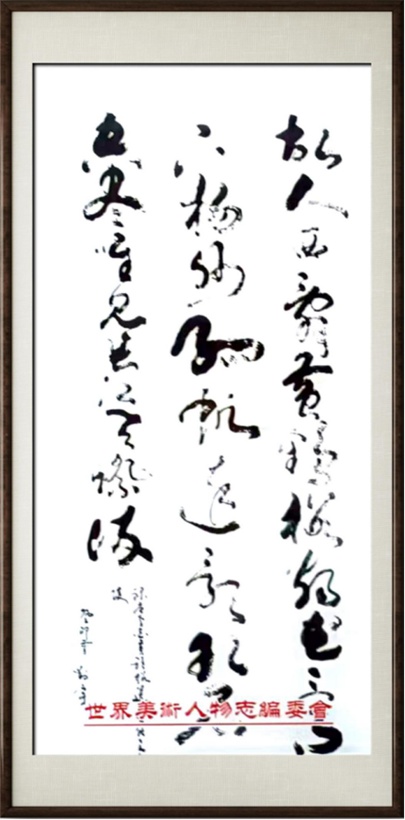 故人西辭黄鶴樓烟花三月
下揚州孤帆遠影碧
空盡唯見長江天際流
世界美術人物志編委會